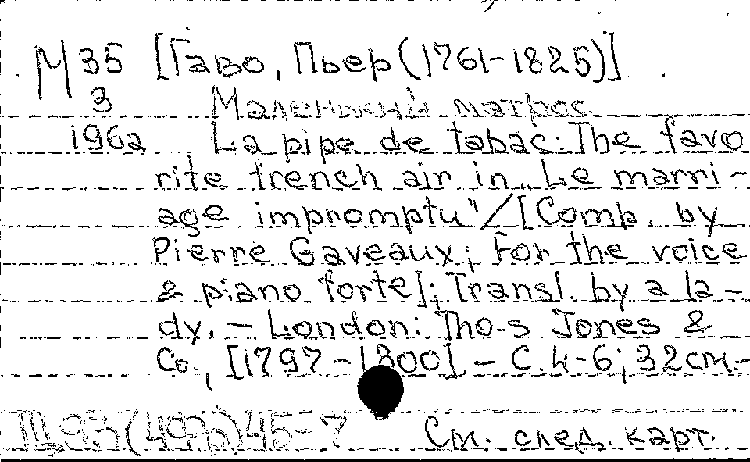 М 35 [Гаво, Пьер (1761-1825)]
3 Маленький матрос
196а La pipe de tabac: The favo
rite french air in „Le marri-
age impromptu"/[Comp. by
Pierre Gaveaux; For the voice
& piano forte]; Transl. by a la-
dy. — London: Tho-s Jones &
Co., [1797-1800]. — С. 4-6; 32см.-
См. след. карт.